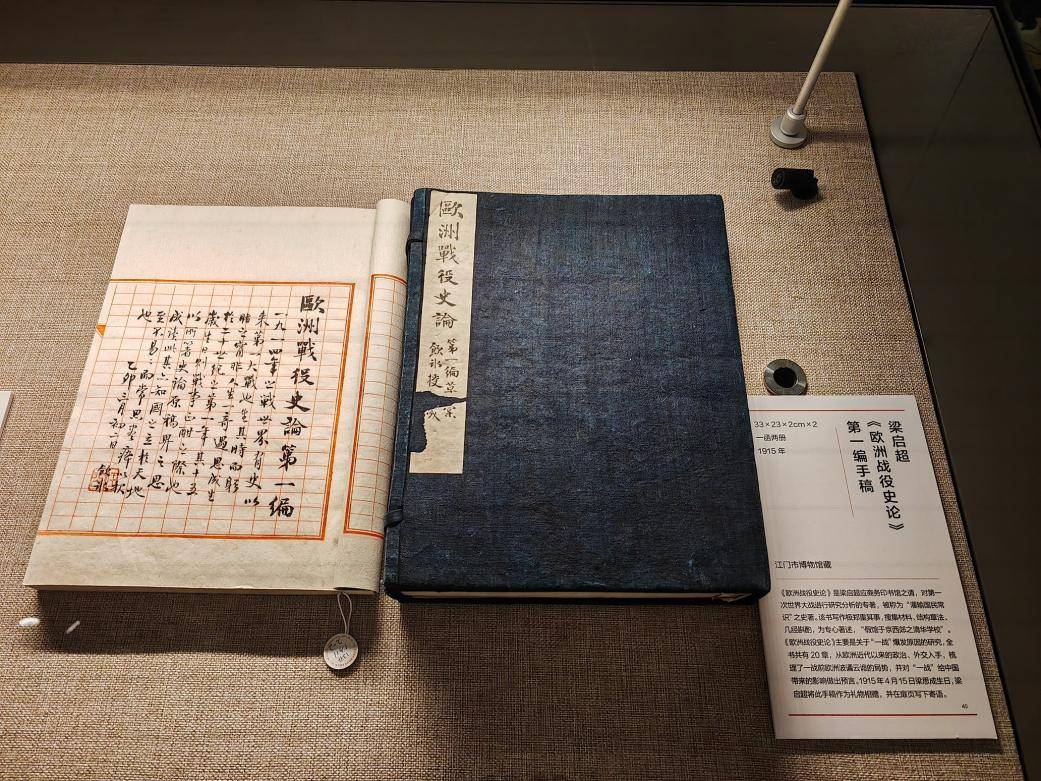 歐洲戰役史論第一編
一九一四年之戰世界有史以
來第一大戰也生其時而躬
睹之寧非人生一奇遇思成生
於二十世紀之第一年其十五
歲生日則戰事正酣之際也
以所著史論原稿畀之思
成讀此其亦知國之立於天地
至不易〻而常思
也
乙卯三月初一日 飲冰
歐洲戰役史論
第一編草
飲冰授
梁启超
《欧洲战役史论》
第一编手稿
33×23×2cm×2
一函两册
1915 年
江门市博物馆藏
《欧洲战役史论》是梁启超应商务印书馆之请，对第一
次世界大战进行研究分析的专著，被称为“灌输国民常
识”之史著。该书写作极郑重其事，搜集材料、结构章法、
几经斟酌，为专心著述，“假馆于京西郊之清华学校”。
《欧洲战役史论》主要是关于“一战”爆发原因的研究，全
书共有 20 章，从欧洲近代以来的政治、外交入手，梳
理了一战前欧洲波谲云诡的局势，并对“一战”给中国
带来的影响做出预言。1915 年 4 月 15 日梁思成生日，梁
启超将此手稿作为礼物相赠，并在扉页写下寄语。
40